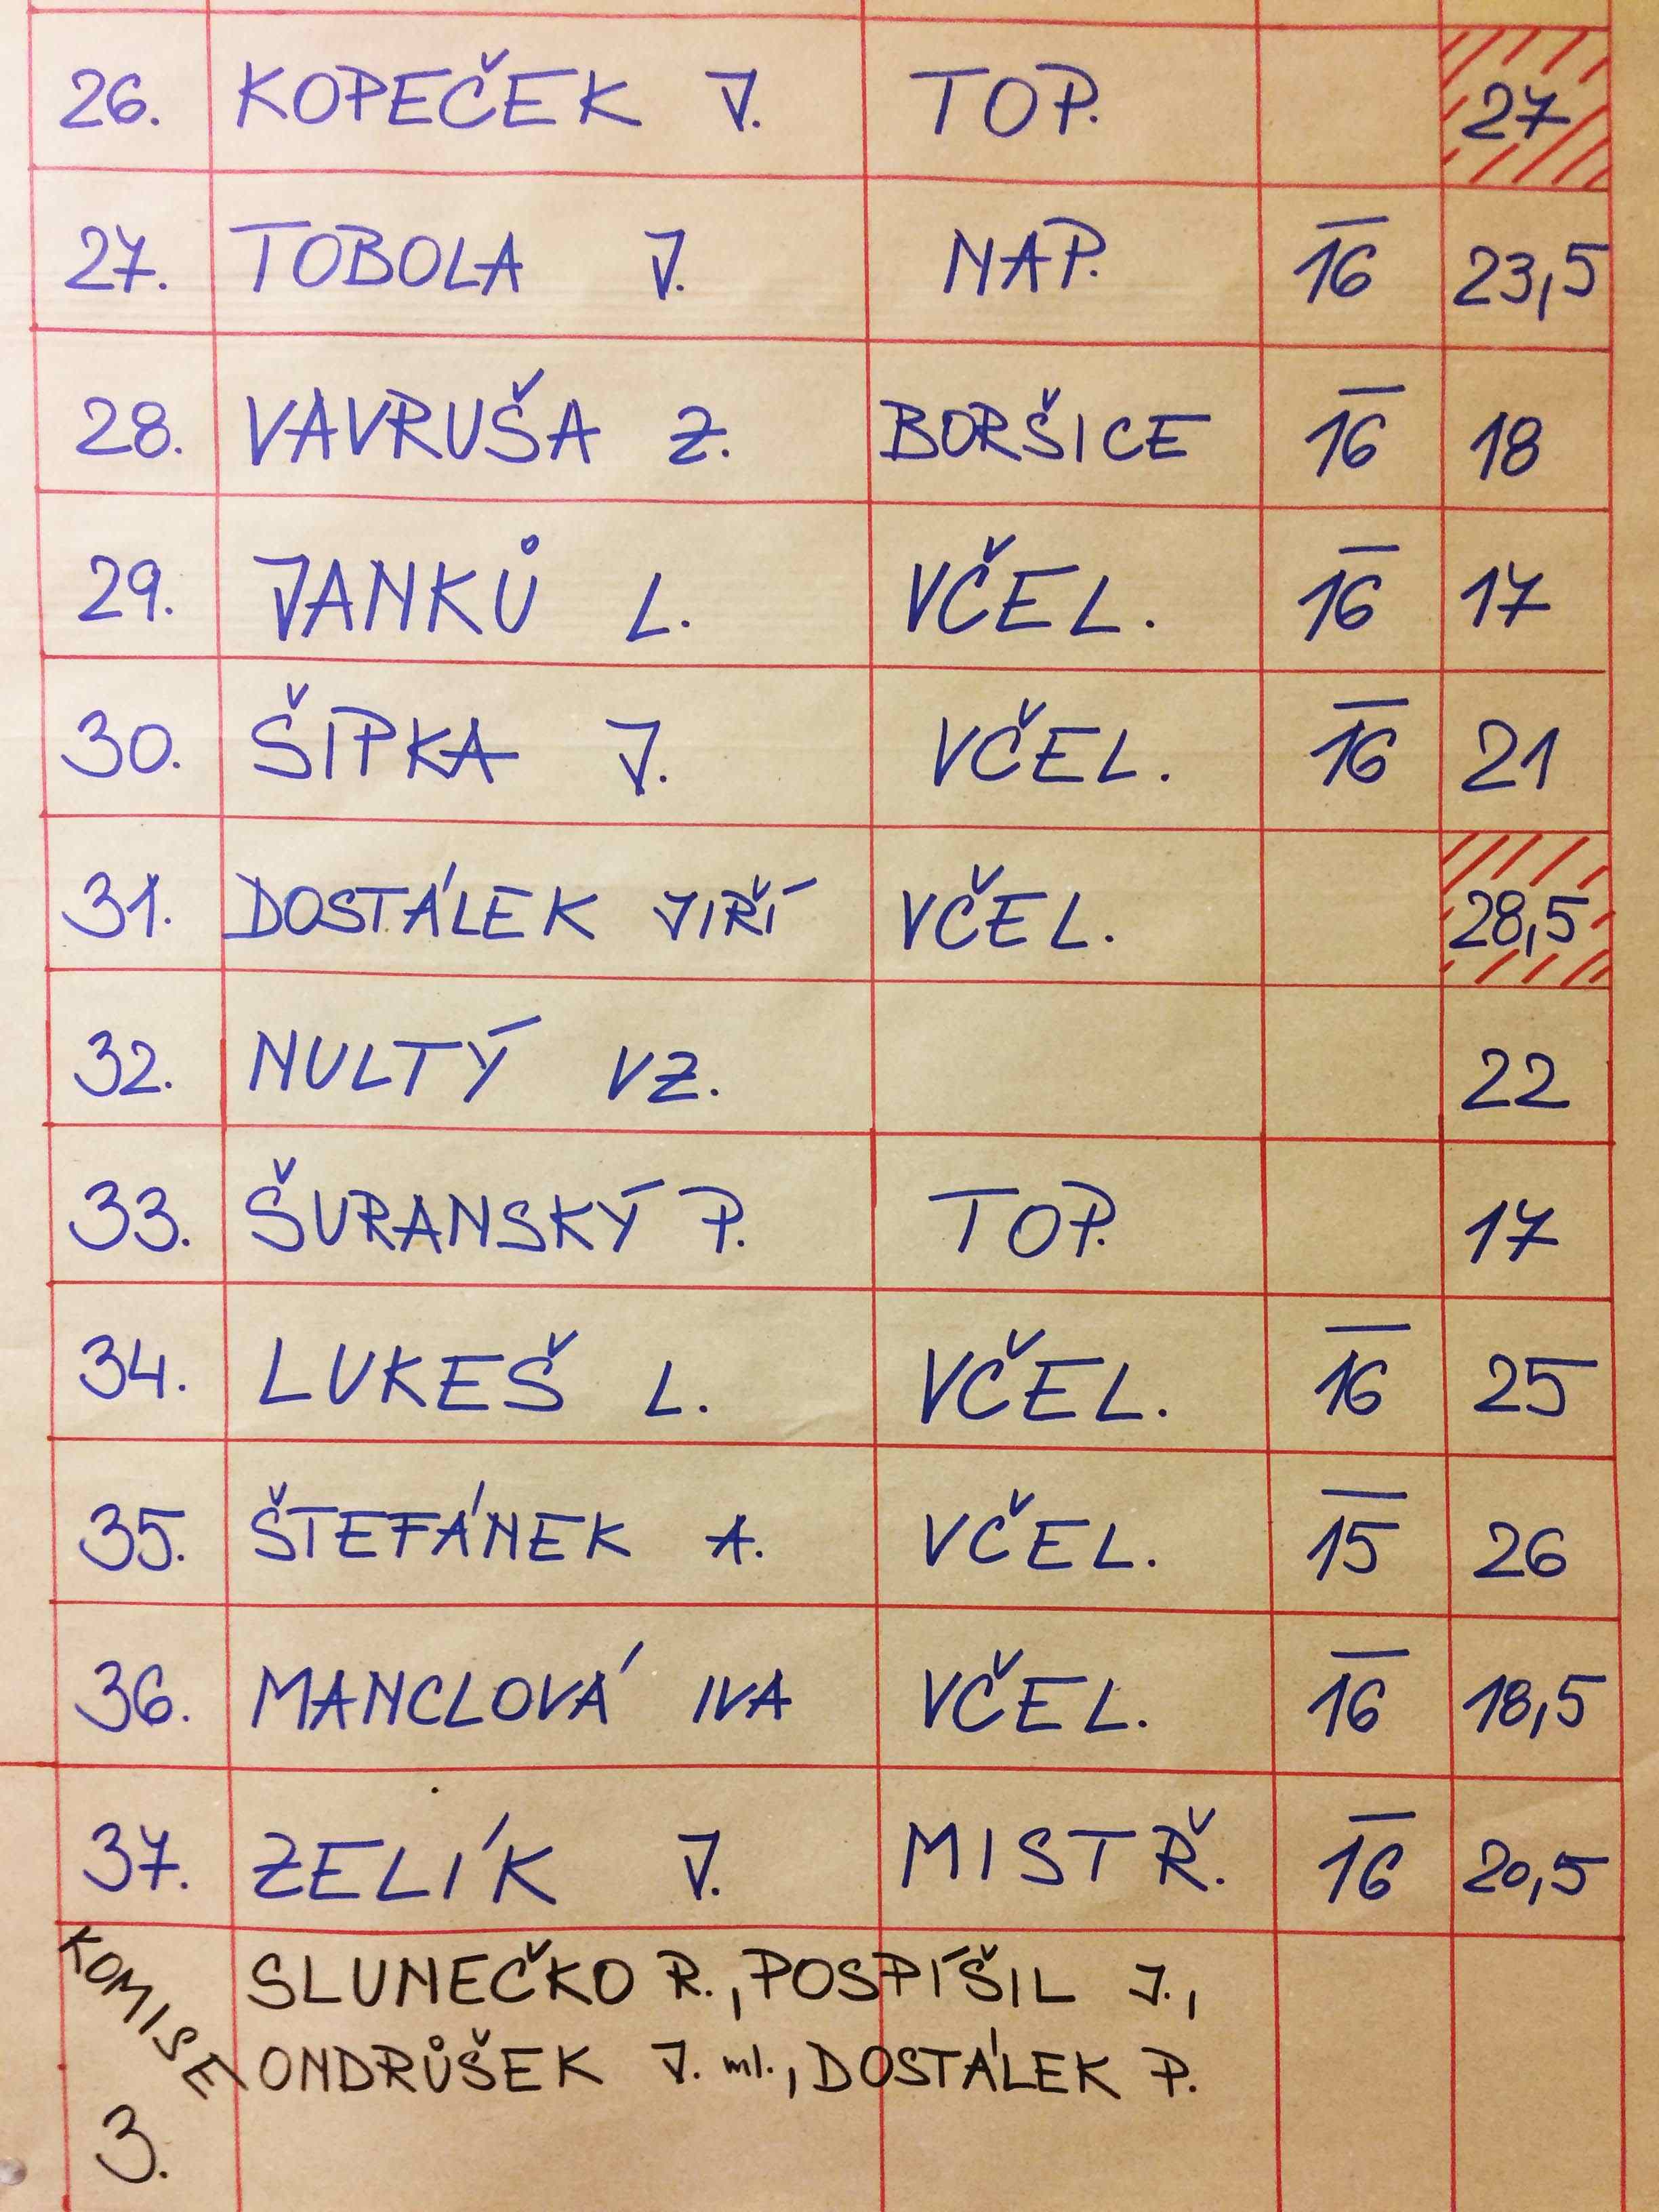 26. KOPEČEK J. TOP. 27
27. TOBOLA J. NAP. 16 23,5
28. VAVRUŠA Z. BORŠICE 16 18
29. JANKŮ L. VČEL. 16 17
30. ŠIPKA J. VČEL. 16 21
31. DOSTÁLEK JIŘÍ VČEL. 28,5
32. NULTÝ VZ. 22
33. ŠURANSKÝ P. TOP. 17
34. LUKEŠ L. VČEL. 16 25
35. ŠTEFÁNEK A. VČEL. 15 26
36. MANCLOVÁ IVA VČEL. 16 18,5
37. ZELÍK J. MISTŘ. 16 20,5
KOMISE
3.
SLUNEČKO R., POSPÍŠIL J.,
ONDRŮŠEK J. ml., DOSTÁLEK P.